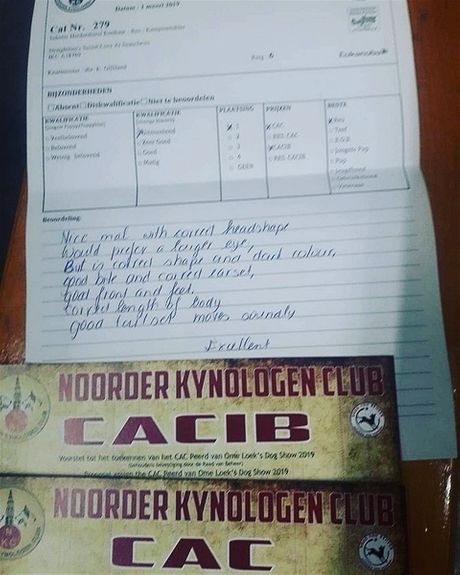 Datum : 1 maart 2019
Cat Nr. 279
Ring 6
BIJZONDERHEDEN
Absent Diskwalificatie Niet te beoordelen
KWALIFICATIE
Veelbelovend
Belovend
Weinig belovend
KWALIFICATIE
Uitmuntend
Zeer Goed
Goed
Matig
PLAATSING
X 1
2
3
4
GEEN
PRIJZEN
X CAC
RES. CAC
X CACIB
RES. CACIB
BESTE
X Reu
Teef
B.O.B.
Jongste Pup
Pup
Jeugdhond
Gebruikshond
Veteraan
Beoordeling:
Nice mal with correct headshape
Would prefer a larger eye,
But is correct shape and dark colour,
good bite and correct earset,
good front and feet,
correct length of body
good tail set moves soundly
Excellent
NOORDER KYNOLOGEN CLUB
CACIB
Voorstel tot het toekennen van het CAC Peerd van Ome Loek's Dog Show 2019
(behoudens bevestiging door de Raad van Beheer)
the CAC Peerd van Ome Loek's Dog Show 2019
NOORDER KYNOLOGEN CLUB
CAC